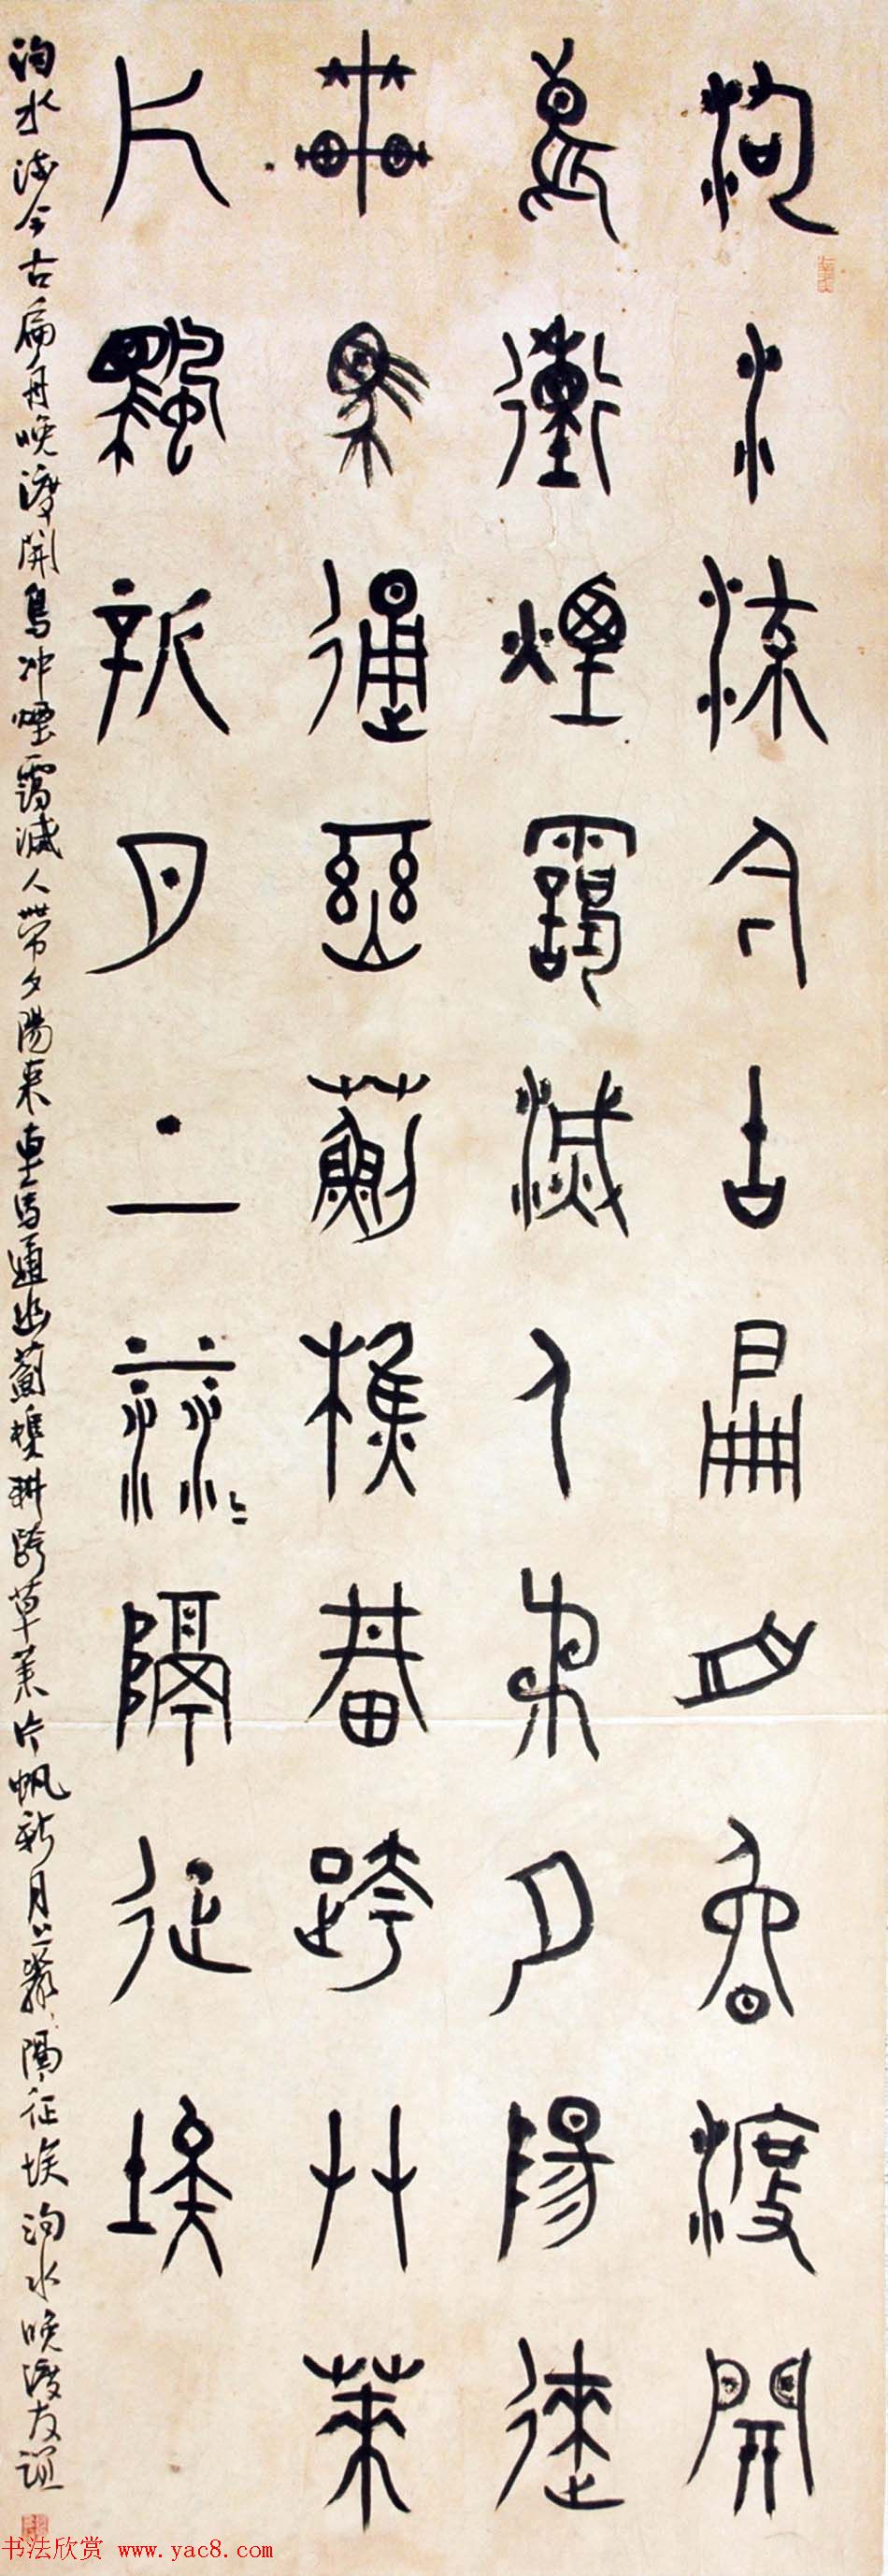 泃水流今古扁舟晚渡開
鳥衝煙靄滅人帶夕陽來
車馬通幽薊樵耕跨草萊
片颿新月上隔征埃
泃水流今古扁舟晚渡開鳥沖煙靄滅人帶夕陽來車馬通幽薊樵耕跨草萊片帆新月上隔征埃 泃水晚渡 友誼
书法欣赏 www.yac8.com